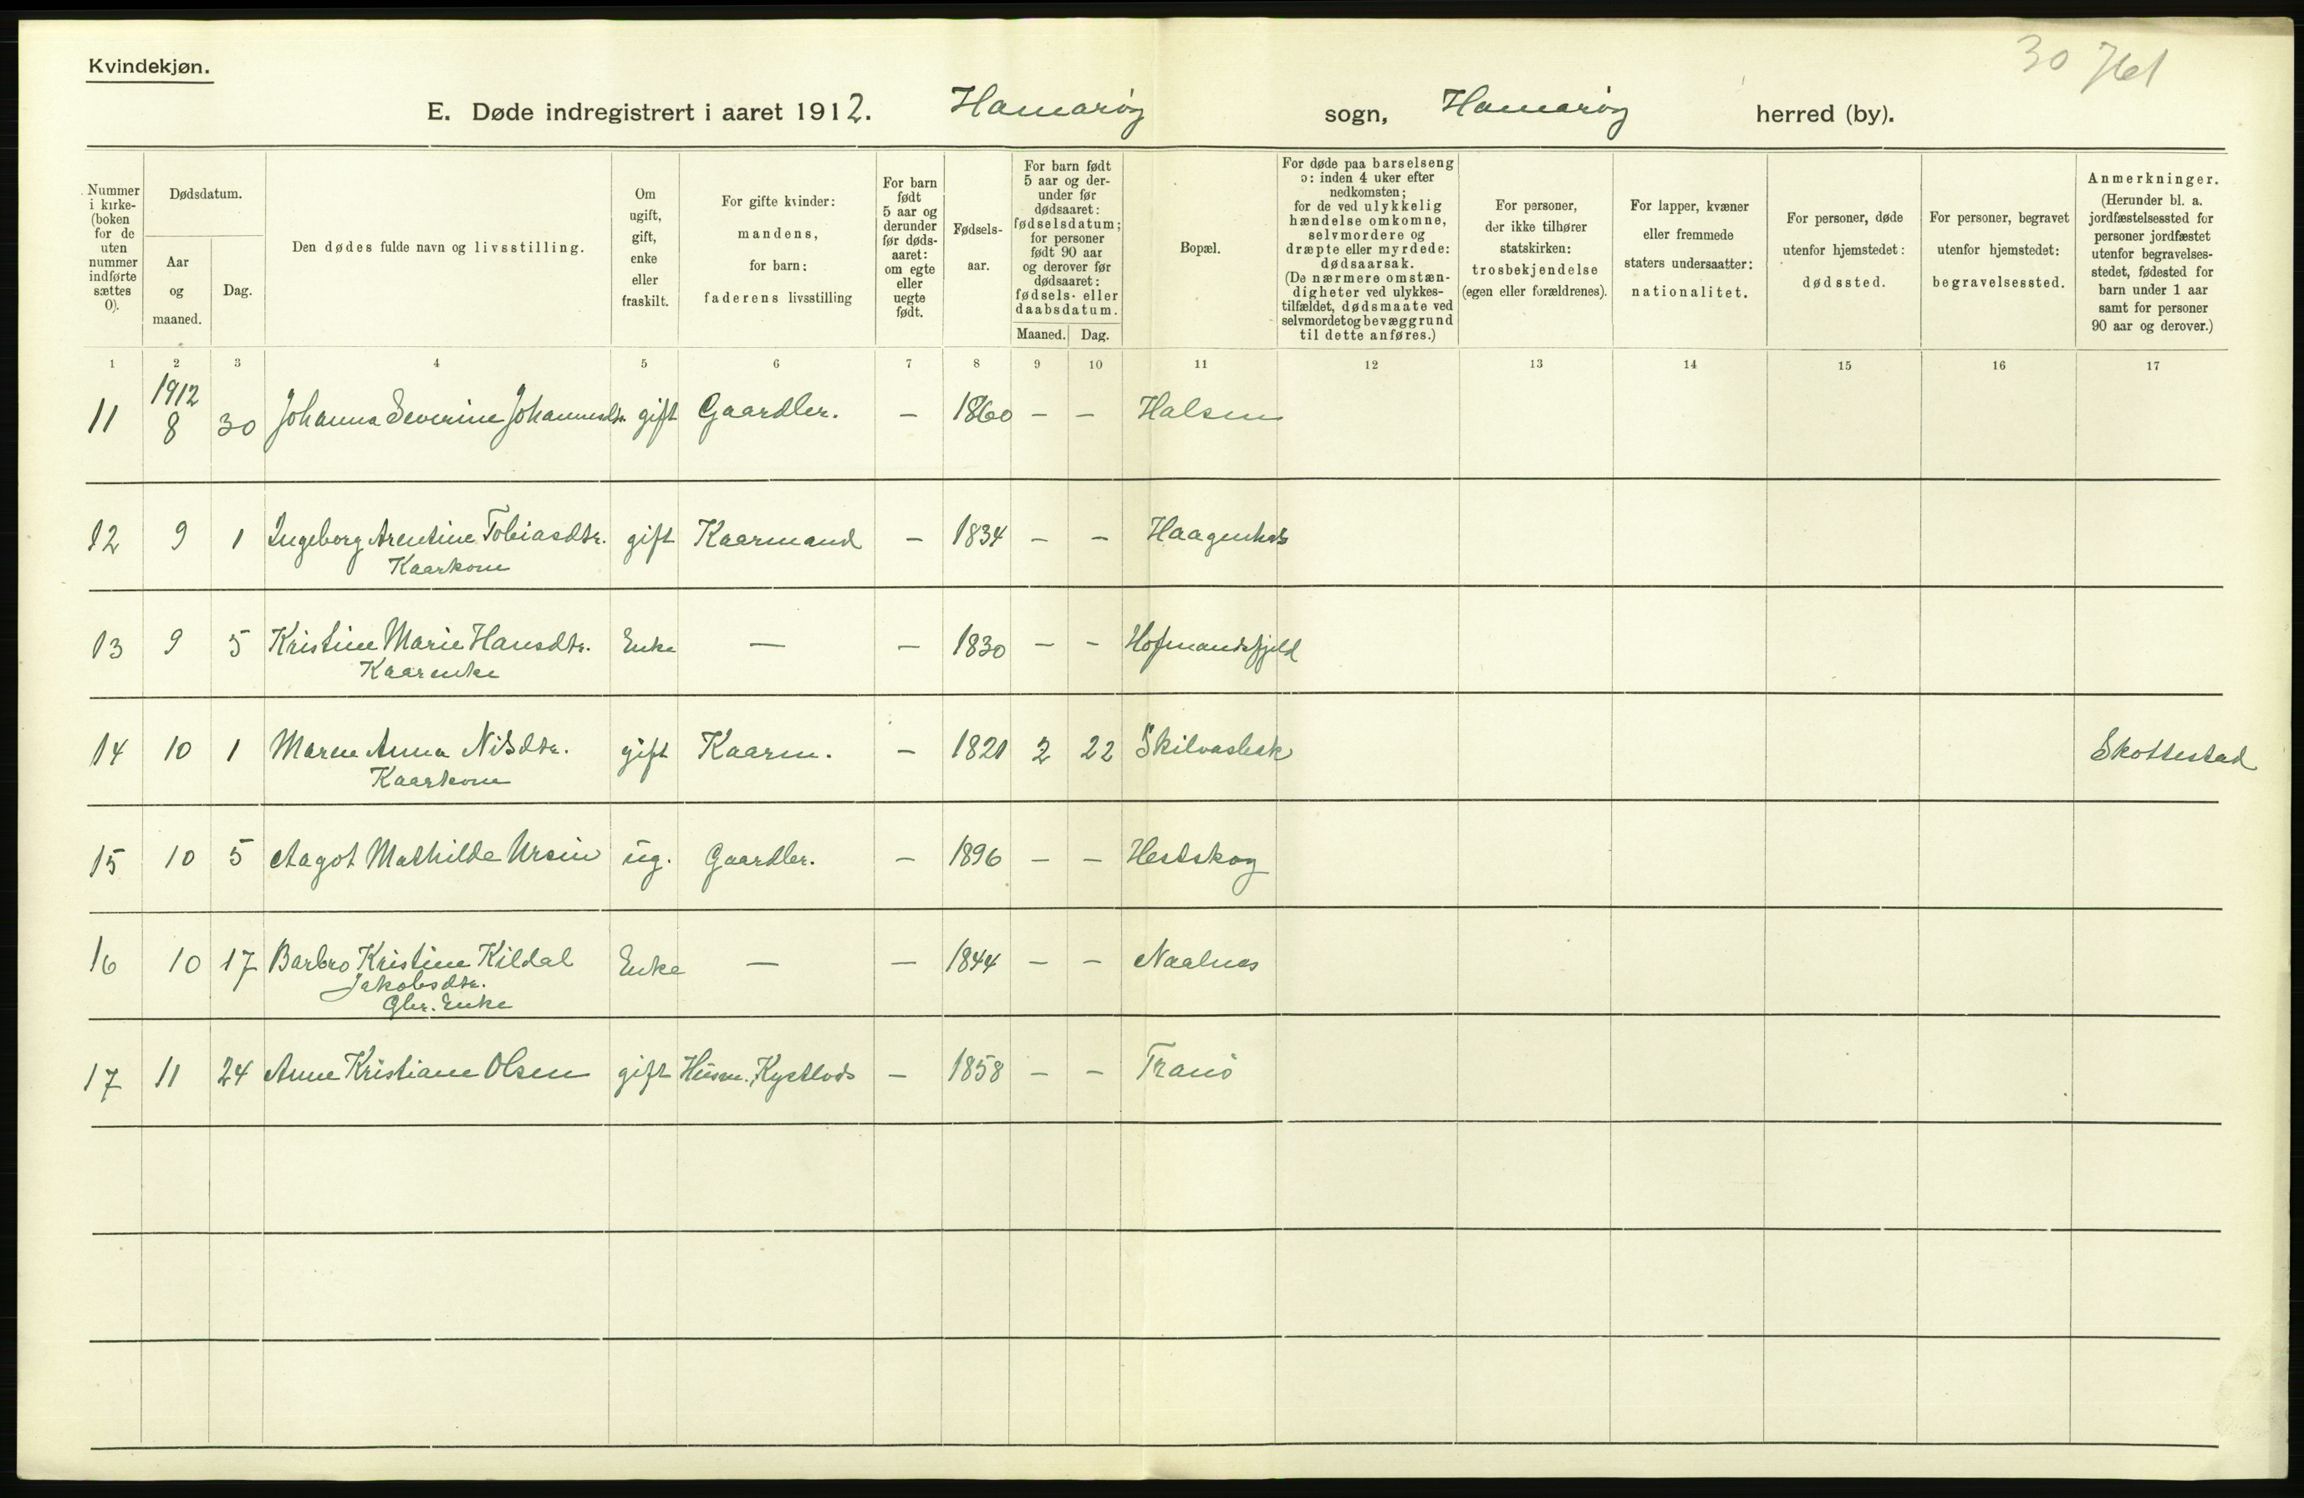 30 761
Kvindekjøn.
E. Døde indregistrert i aaret 1912. Hamarøy sogn, Hamarøy herred (by).
Nummer i kirke-(boken for de uten nummer indførte sættes 0).
Dødsdatum.
Aar og maaned.
Dag.
Den dødes fulde navn og livsstilling.
Om ugift, gift, enke eller fraskilt.
For gifte kvinder: mandens, for barn: faderens livsstilling
For barn født 5 aar og derunder før døds-aaret: om egte eller uegte født.
Fødsels-aar.
For barn født 5 aar og der-under før dødsaaret: fødselsdatum; for personer født 90 aar og derover før dødsaaret: fødsels- eller daabsdatum.
Maaned. Dag.
Bopæl.
For døde paa barselseng ɔ: inden 4 uker efter nedkomsten; for de ved ulykkelig hændelse omkomne, selvmordere og dræpte eller myrdede: dødsaarsak. (De nærmere omstæn-digheter ved ulykkes-tilfældet, dødsmaate ved selvmordet og bevæggrund til dette anføres.)
For personer, der ikke tilhører statskirken: trosbekjendelse (egen eller forældrenes).
For lapper, kvæner eller fremmede staters undersaatter: nationalitet.
For personer, døde utenfor hjemstedet: dødssted.
For personer, begravet utenfor hjemstedet: begravelsessted.
Anmerkninger. (Herunder bl. a. jordfæstelsessted for personer jordfæstet utenfor begravelses-stedet, fødested for barn under 1 aar samt for personer 90 aar og derover.)
1 2 3 4 5 6 7 8 9 10 11 12 13 14 15 16 17
1912
11 8 30 Johanna Severine Johannesdtr. gift Gaardbr. – 1860 – – Halsen
12 9 1 Ingeborg Arentine Tobiasdtr. gift Kaarmand – 1834 – –
Kaarkone
13 9 5 Kristine Marie Hansdtr. Enke – – 1830 – – Hofmandsfjeld
Kaarenke
14 10 1 Maren Anna Nilsdtr. gift Kaarm. – 1821 2 22 Skilvasbak Skottestad
Kaarkone
15 10 5 Aagot Mathilde Ursin ug. Gaardbr. – 1896 – – Hestskog
16 10 17 Barbro Kristine Kildal Enke – – 1844 – – Naalnes
Jakobsdtr.
Gbr. Enke
17 11 24 Anne Kristiane Olsen gift Husm. – 1858 – – Tranö